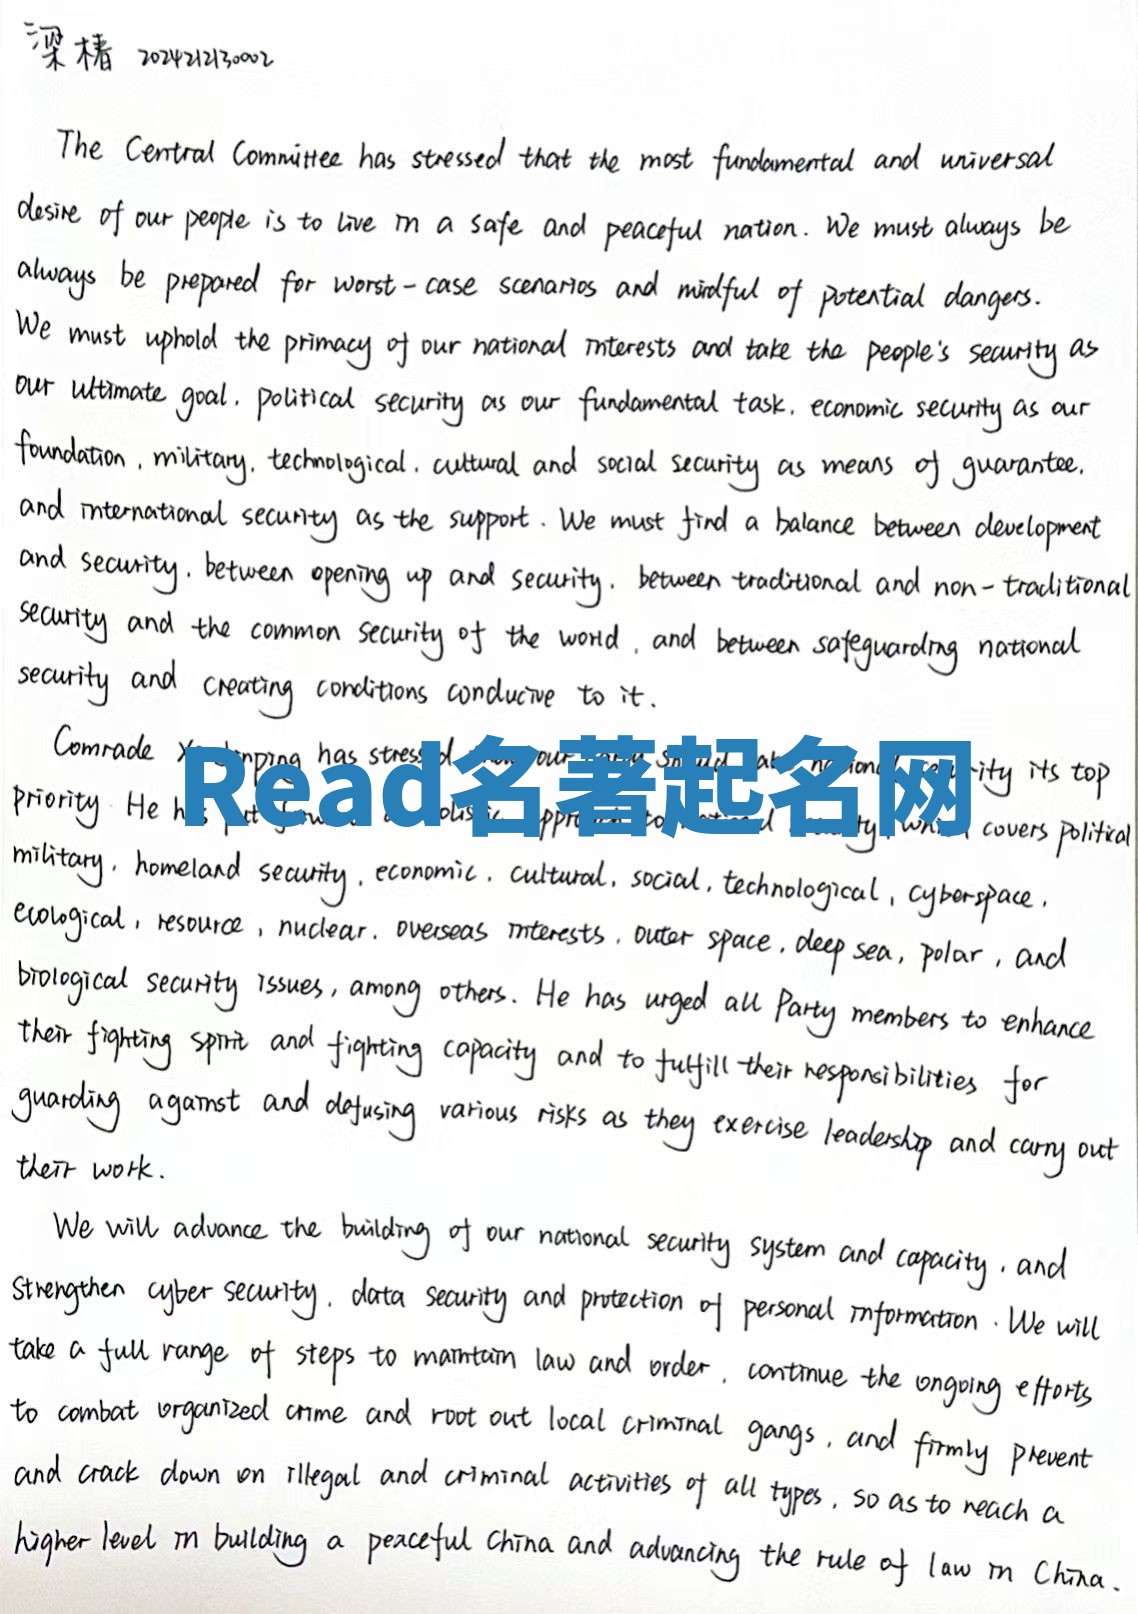 梁椿 2024212130002
The Central Committee has stressed that the most fundamental and universal
desire of our people is to live in a safe and peaceful nation. We must always be
always be prepared for worst-case scenarios and mindful of potential dangers.
We must uphold the primacy of our national interests and take the people's security as
our ultimate goal, political security as our fundamental task, economic security as our
foundation, military, technological, cultural and social security as means of guarantee,
and international security as the support. We must find a balance between development
and security, between opening up and security, between traditional and non-traditional
security and the common security of the world, and between safeguarding national
security and creating conditions conducive to it.
Comrade Xi Jinping has stressed our national security its top
Read名著起名网
priority. He has put to covers political
military, homeland security, economic, cultural, social, technological, cyberspace,
ecological, resource, nuclear, overseas interests, outer space, deep sea, polar, and
biological security issues, among others. He has urged all Party members to enhance
their fighting spirit and fighting capacity and to fulfill their responsibilities for
guarding against and defusing various risks as they exercise leadership and carry out
their work.
We will advance the building of our national security system and capacity, and
strengthen cyber security, data security and protection of personal information. We will
take a full range of steps to maintain law and order, continue the ongoing efforts
to combat organized crime and root out local criminal gangs, and firmly prevent
and crack down on illegal and criminal activities of all types, so as to reach a
higher level in building a peaceful China and advancing the rule of law in China.